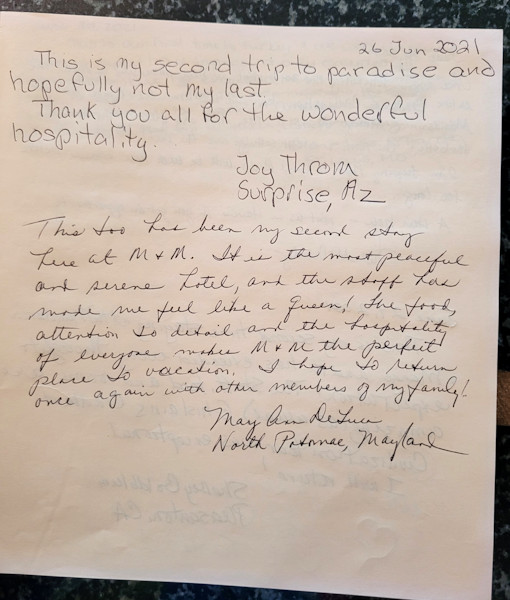 26 Jun 2021
This is my second trip to paradise and
hopefully not my last.
Thank you all for the wonderful
hospitality.
Joy Throm
Surprise, Az
This too has been my second stay
here at M & M. It is the most peaceful
and serene hotel, and the staff has
made me feel like a Queen! The food,
attention to detail and the hospitality
of everyone makes M & M the perfect
place to vacation. I hope to return
once again with other members of my family!
Mary Ann DeLuca
North Potomac, Maryland